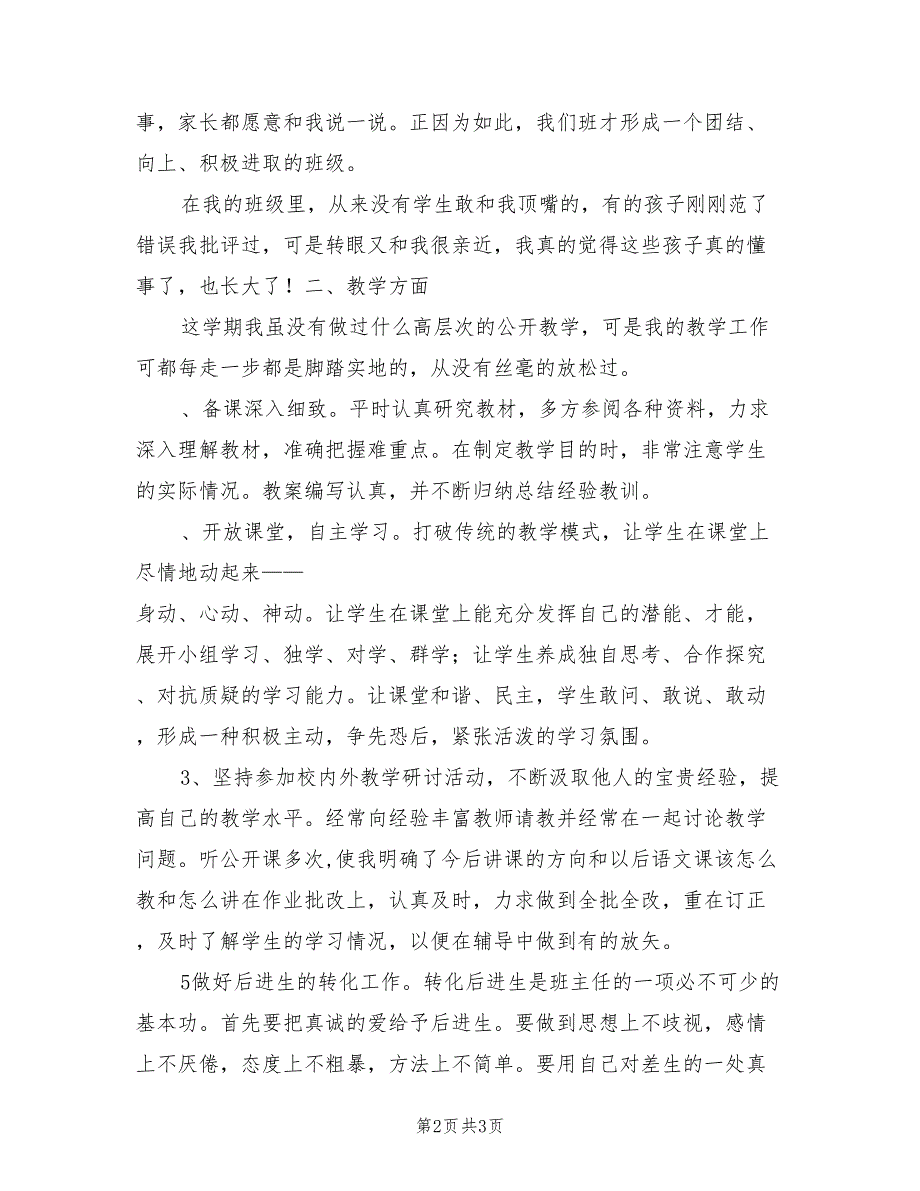 事，家长都愿意和我说一说。正因为如此，我们班才形成一个团结、
向上、积极进取的班级。
在我的班级里，从来没有学生敢和我顶嘴的，有的孩子刚刚范了
错误我批评过，可是转眼又和我很亲近，我真的觉得这些孩子真的懂
事了，也长大了！二、教学方面
这学期我虽没有做过什么高层次的公开教学，可是我的教学工作
可都每走一步都是脚踏实地的，从没有丝毫的放松过。
、备课深入细致。平时认真研究教材，多方参阅各种资料，力求
深入理解教材，准确把握难重点。在制定教学目的时，非常注意学生
的实际情况。教案编写认真，并不断归纳总结经验教训。
、开放课堂，自主学习。打破传统的教学模式，让学生在课堂上
尽情地动起来——
身动、心动、神动。让学生在课堂上能充分发挥自己的潜能、才能，
展开小组学习、独学、对学、群学；让学生养成独自思考、合作探究
、对抗质疑的学习能力。让课堂和谐、民主，学生敢问、敢说、敢动
，形成一种积极主动，争先恐后，紧张活泼的学习氛围。
3、坚持参加校内外教学研讨活动，不断汲取他人的宝贵经验，提
高自己的教学水平。经常向经验丰富教师请教并经常在一起讨论教学
问题。听公开课多次,使我明确了今后讲课的方向和以后语文课该怎么
教和怎么讲在作业批改上，认真及时，力求做到全批全改，重在订正
，及时了解学生的学习情况，以便在辅导中做到有的放矢。
5做好后进生的转化工作。转化后进生是班主任的一项必不可少的
基本功。首先要把真诚的爱给予后进生。要做到思想上不歧视，感情
上不厌倦，态度上不粗暴，方法上不简单。要用自己对差生的一处真
第2页共3页